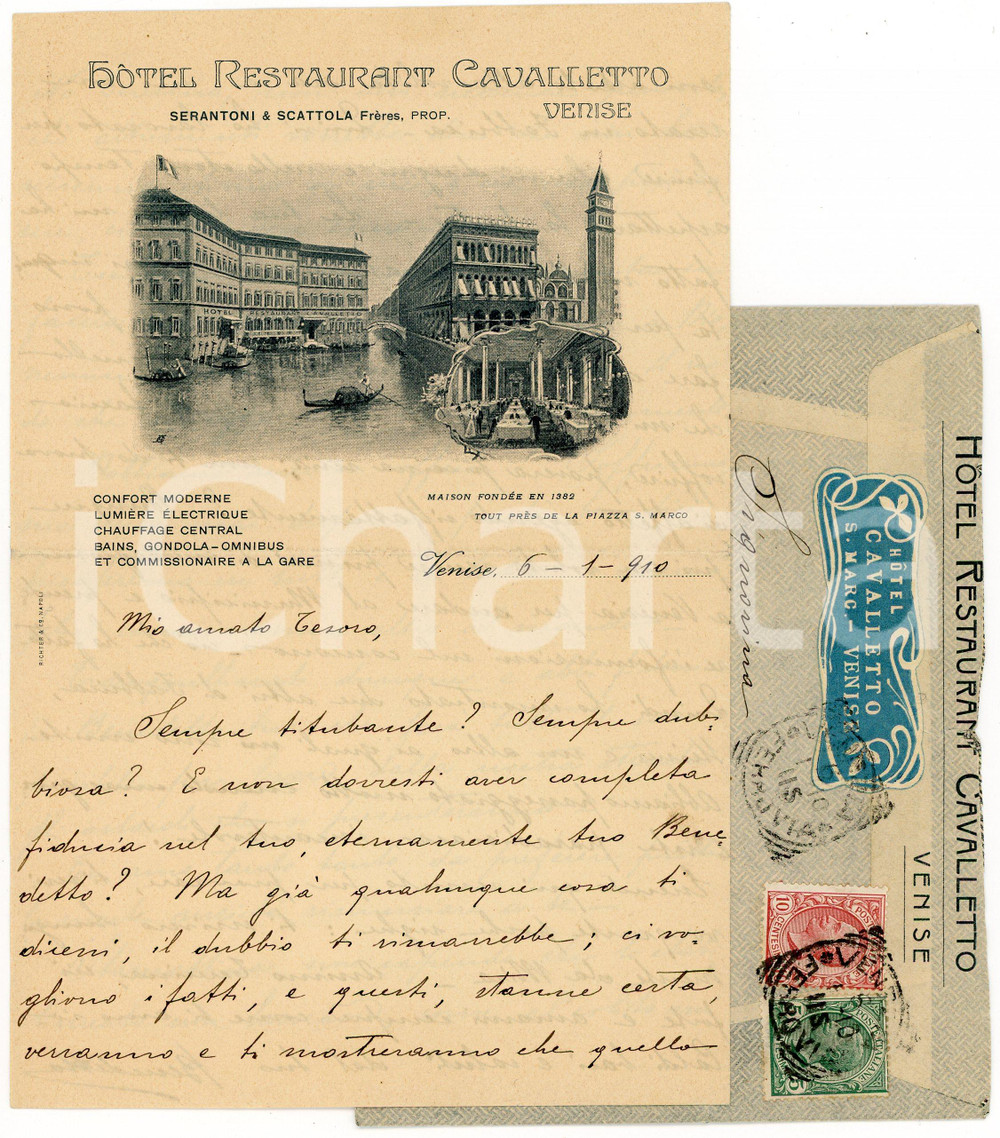 HÔTEL RESTAURANT CAVALLETTO
VENISE
SERANTONI & SCATTOLA Frères, PROP.
HOTEL RESTAURANT CAVALLETTO
CONFORT MODERNE
LUMIÈRE ÉLECTRIQUE
CHAUFFAGE CENTRAL
BAINS, GONDOLA-OMNIBUS
ET COMMISSIONAIRE A LA GARE
MAISON FONDÉE EN 1382
TOUT PRÈS DE LA PIAZZA S. MARCO
RICHTER & Co. NAPOLI
Venise, 6 - 1 - 910
Mio amato Tesoro,
Sempre titubante? Sempre dub-
biosa? E non dovresti aver completa
fiducia nel tuo, eternamente tuo Bene-
detto? Ma già qualunque cosa ti
dicessi, il dubbio ti rimarrebbe; ci vo-
gliono i fatti, e questi, stanne certa,
verranno e ti mostreranno che quello
iCharta
HÔTEL RESTAURANT CAVALLETTO
VENISE
HÔTEL
CAVALLETTO
S. MARC - VENISE
Signorina
FERROVIA
10 CENTESIMI
POSTE ITALIANE
5
FERROVIA